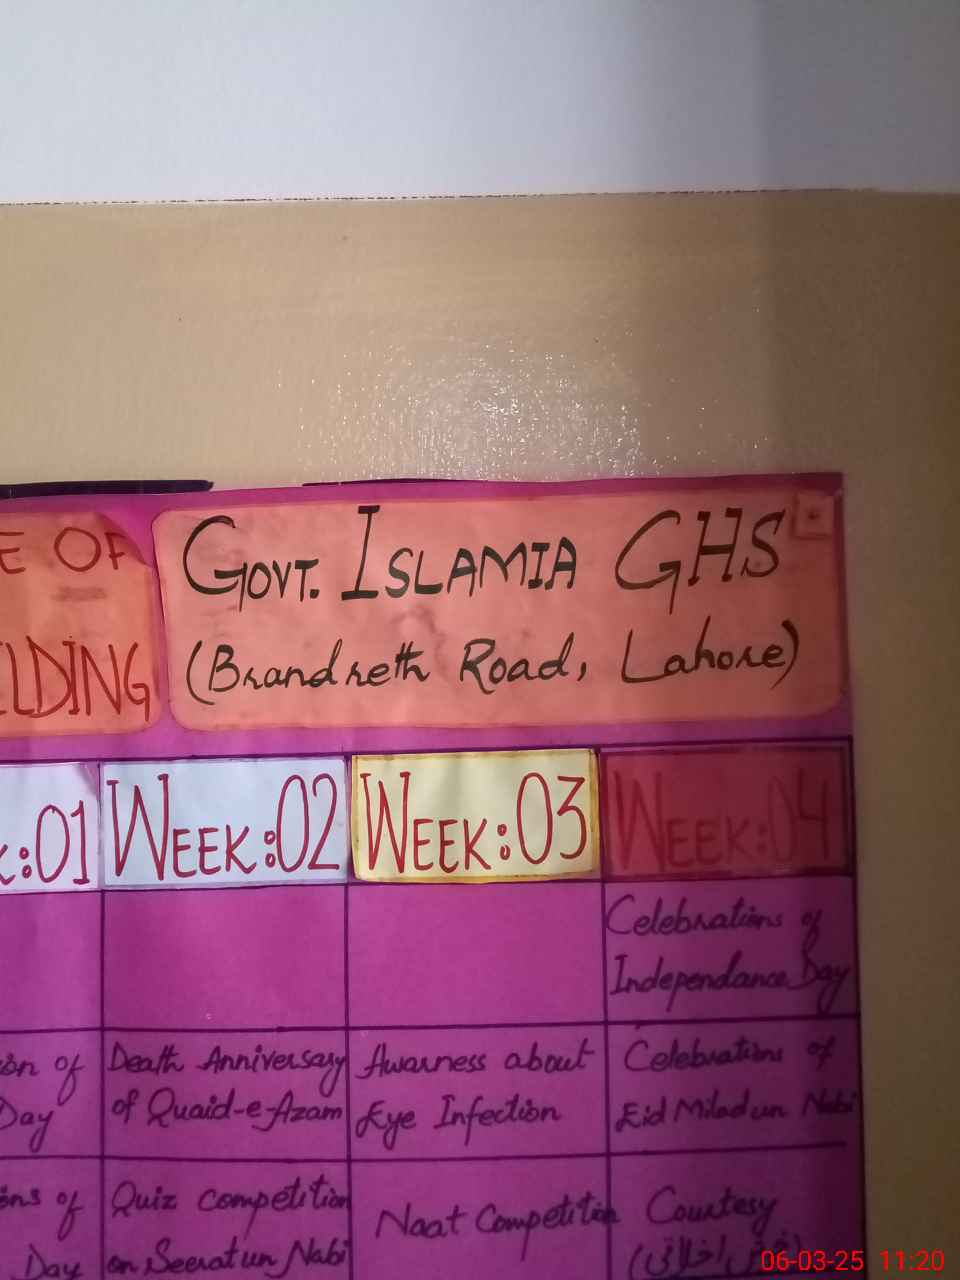 E OF
LDING
GOVT. ISLAMIA GHS
(Brandreth Road, Lahore)
K:01
WEEK:02
WEEK:03
WEEK:04
Celebrations of
Independance Day
ion of
Day
Death Anniversary
of Quaid-e-Azam
Awarness about
Eye Infection
Celebrations of
Eid Milad un Nabi
ons of
Day
Quiz competition
on Seerat un Nabi
Naat Competition
Courtesy
(خوش اخلاقی)
06-03-25 11:20